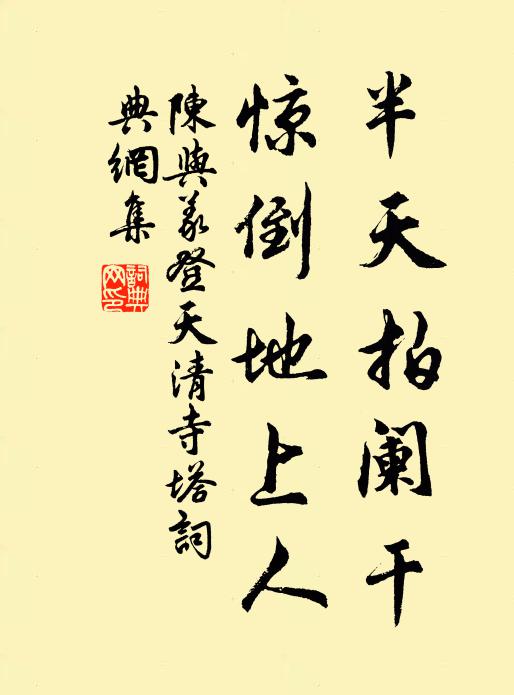 半天拍阑干
惊倒地上人
陳與義登天清寺塔詞
典網集
詞典
网印